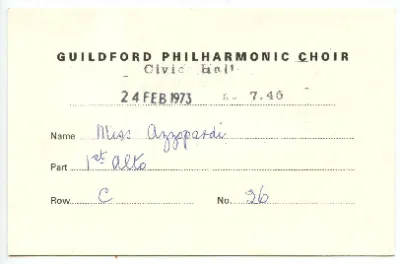 GUILDFORD PHILHARMONIC CHOIR
Civic Hall
24 FEB 1973 7.46
Name Miss Azzopardi
Part 1st Alto
Row C No 26